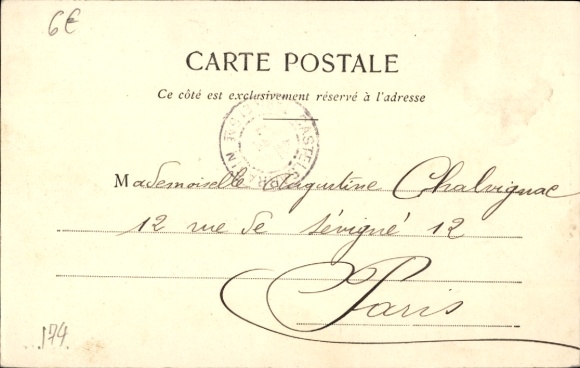 6€
CARTE POSTALE
Ce côté est exclusivement réservé à l'adresse
Mademoiselle Augustine Chalvignac
12 rue de Sévigné 12
Paris
174